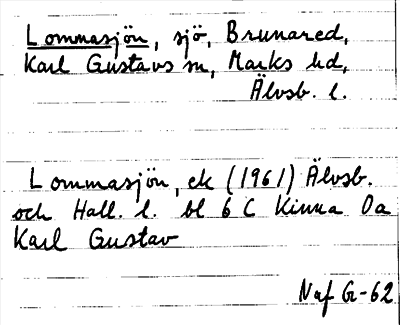 Lommasjön, sjö, Brunared,
Karl Gustavs sn, Marks hd,
Älvsb. l.
Lommasjön, ek (1961) Älvsb.
och Hall. l. bl 6 C Kinna Oa
Karl Gustav
Naf G-62